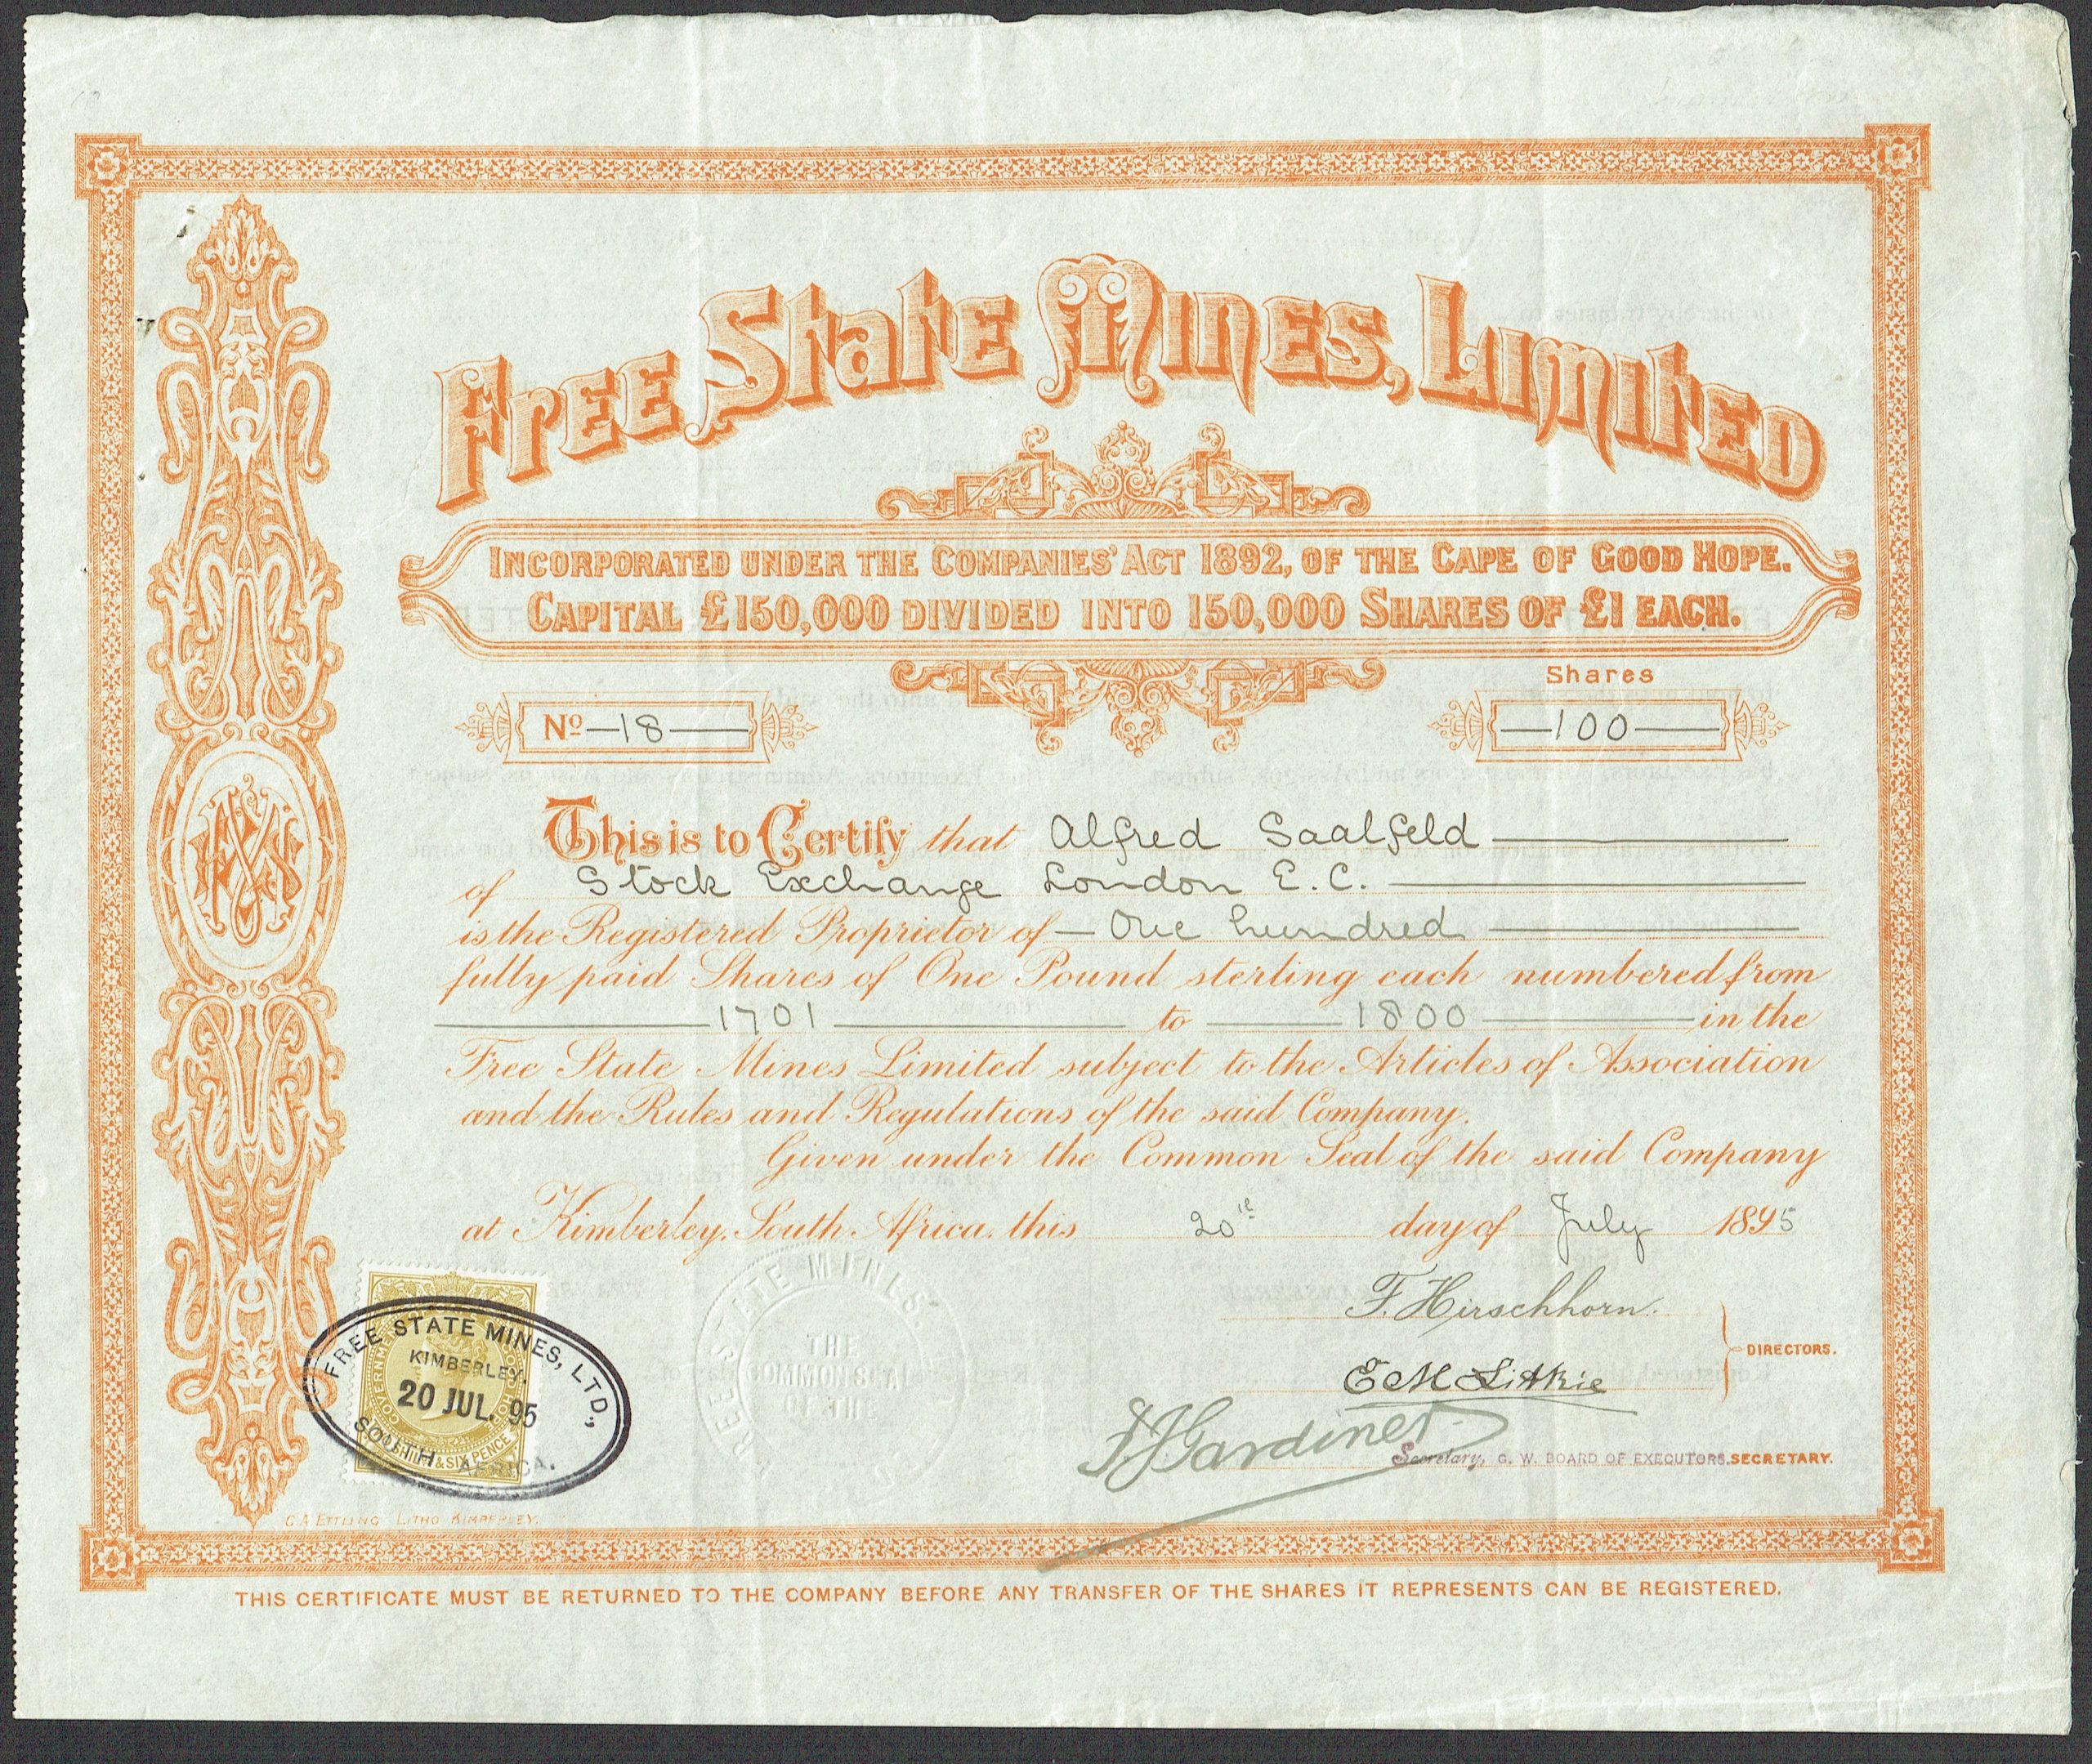 Free State Mines, Limited
Incorporated under the Companies' Act 1892, of the Cape of Good Hope.
Capital £150,000 divided into 150,000 Shares of £1 each.
Shares
Nº 18
100
This is to Certify that Alfred Saalfeld
of Stock Exchange London E.C.
is the Registered Proprietor of One hundred
fully paid Shares of One Pound sterling each numbered from
1701 to 1800 in the
Free State Mines Limited subject to the Articles of Association
and the Rules and Regulations of the said Company.
Given under the Common Seal of the said Company
at Kimberley, South Africa, this 20th day of July 1895
F. Hirschhorn.
DIRECTORS.
Gardiner
Secretary, G. W. BOARD OF EXECUTORS. SECRETARY.
FREE STATE MINES, LTD.,
KIMBERLEY.
20 JUL. 95
SOUTH AFRICA.
& SIX PENCE
STATE MINES
THE
COMMON SEAL
OF THE
C. A. ETTLING LITHO KIMBERLEY.
THIS CERTIFICATE MUST BE RETURNED TO THE COMPANY BEFORE ANY TRANSFER OF THE SHARES IT REPRESENTS CAN BE REGISTERED.